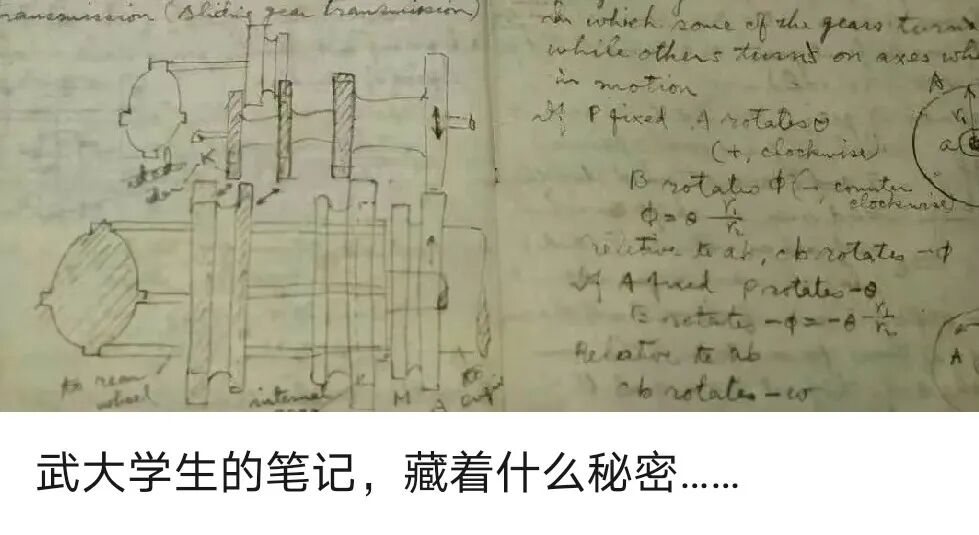 ransmission (Sliding gear transmission)
K
to rear
wheel
internal
M
A
in which some of the gears turn
while others turns on axes wh
in motion
If P fixed, A rotates θ
(+, clockwise)
B rotates ϕ (-, counter
clockwise)
ϕ = θ r₁/r₂
relative to ab, cb rotates -ϕ
If A fixed P rotates -θ
rotates -ϕ = -θ r₁/r₂
Relative to ab
cb rotates -ω
A
r₁
a
A
武大学生的笔记，藏着什么秘密……